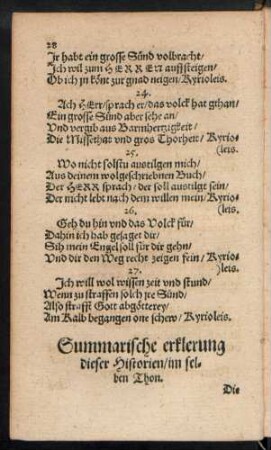 28
Ir habt ein grosse Sünd volbracht/
Ich wil zum HERREN auffsteigen/
Ob ich jn könt zur gnad neigen/ Kyrioleis.
24.
Ach HErr/ sprach er/ das volck hat gthan/
Ein grosse Sünd aber sehe an/
Vnd vergib aus Barmhertzigkeit/
Die Missethat vnd gros Thorheit/ Kyrio-
25. )leis.
Wo nicht solstu austilgen mich/
Aus deinem wolgeschriebnen Buch/
Der HERR sprach/ der soll austilgt sein/
Der nicht lebt nach dem willen mein/ Kyrio-
26. )leis.
Geh du hin vnd das Volck für/
Dahin ich hab gesaget dir/
Sih mein Engel soll für dir gehn/
Vnd dir den Weg recht zeigen fein/ Kyrio-
27. )leis.
Ich will wol wissen zeit vnd stund/
Wenn zu straffen solch jre Sünd/
Also strafft Gott abgötterey/
Am Kalb begangen one schew/ Kyrioleis.
Summarische erklerung
dieser Historien/ im sel-
ben Thon.
Die